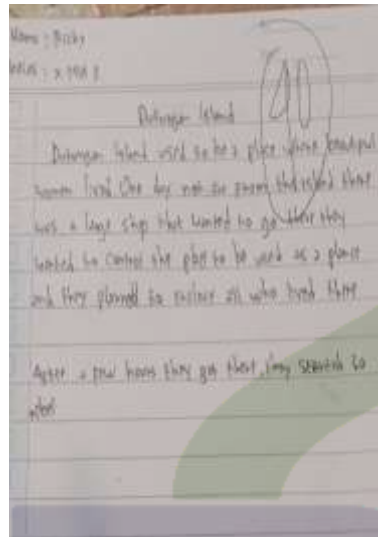 Name : Bicky
Kelas : X MIA 1
Island
Island used to be a place where beautiful
women lived One day not so the island there
was a large ship that wanted to go there they
wanted to control the place to be used as a place
and they planned to enslave all who lived there
After a few hours they got there, they